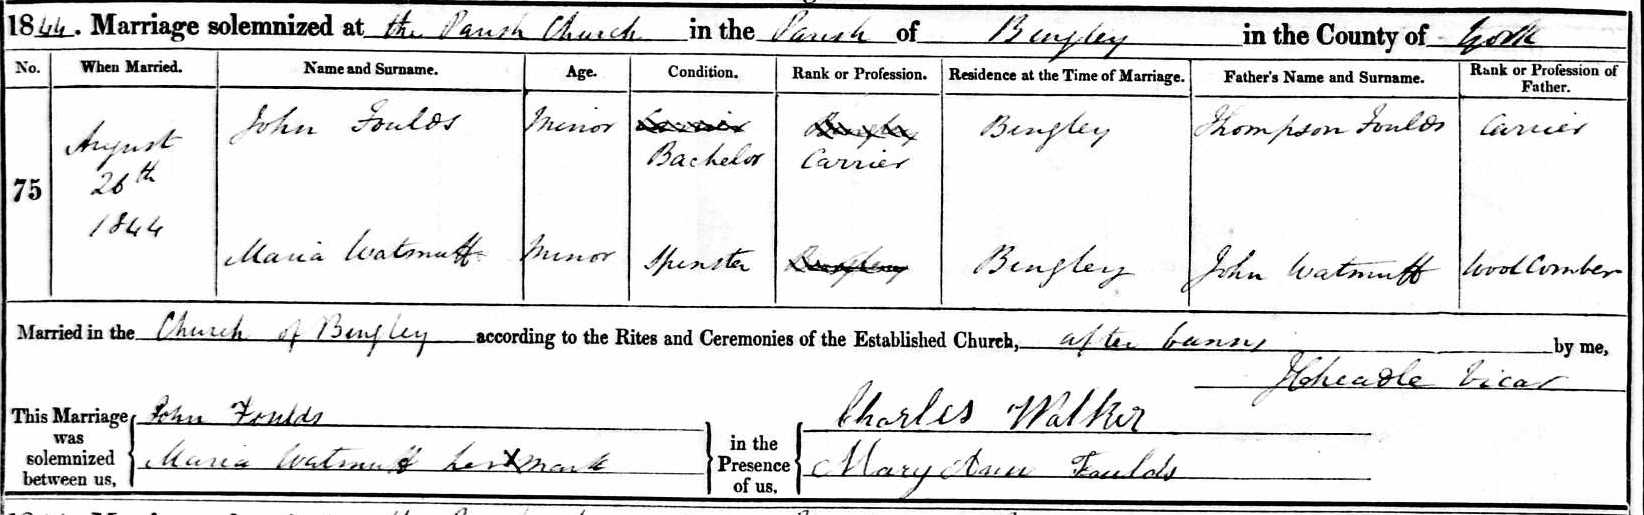 1844. Marriage solemnized at the Parish Church in the Parish of Bingley in the County of York
No. When Married. Name and Surname. Age. Condition. Rank or Profession. Residence at the Time of Marriage. Father's Name and Surname. Rank or Profession of Father.
75 August 26th 1844
John Foulds Minor Carrier Bachelor Bingley Carrier Bingley Thompson Foulds Carrier
Maria Watmuff Minor Spinster Bingley Bingley John Watmuff Woolcomber
Married in the Church of Bingley according to the Rites and Ceremonies of the Established Church, after banns by me,
J Cheadle Vicar
This Marriage was solemnized between us, John Foulds
Maria Watmuff her X mark
in the Presence of us, Charles Walker
Mary Ann Foulds